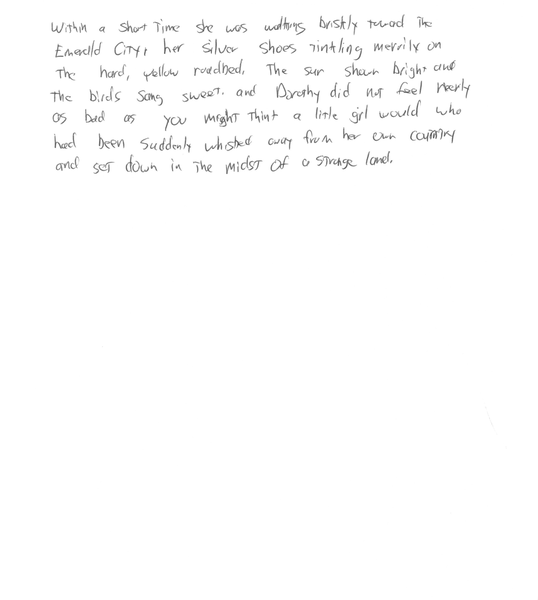 Within a short time she was walking briskly toward the
Emerald City, her Silver Shoes tinkling merrily on
the hard, yellow roadbed. The sun shown bright and
the birds sang sweet, and Dorothy did not feel nearly
as bad as you might think a little girl would who
had been suddenly whisked away from her own country
and set down in the midst of a strange land.